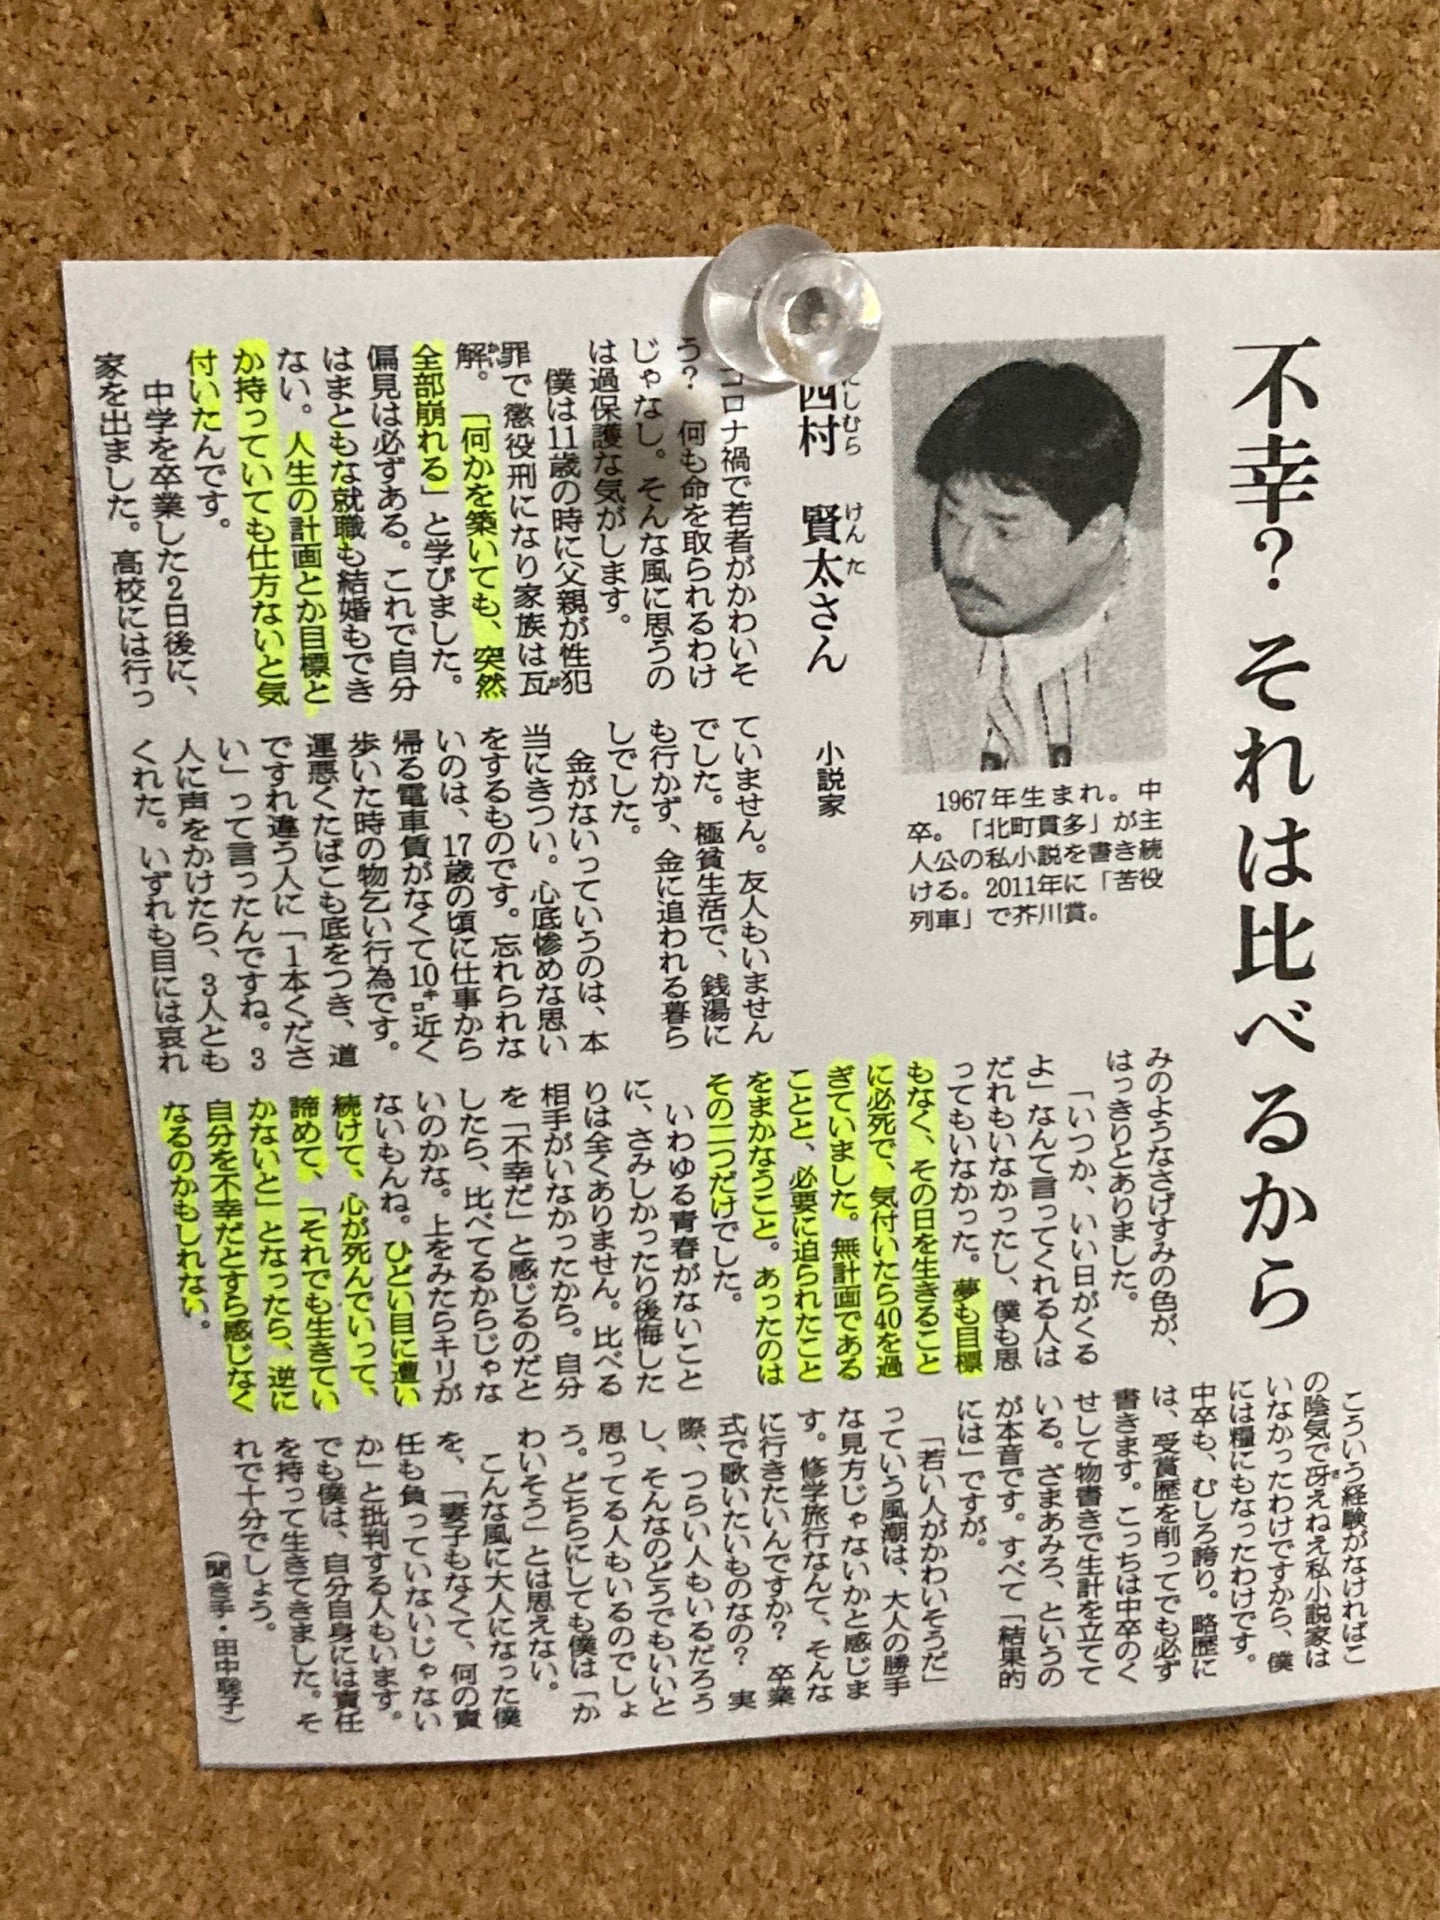 不幸？それは比べるから
にしむら けんた
西村 賢太さん 小説家
1967年生まれ。中
卒。「北町貫多」が主
人公の私小説を書き続
ける。2011年に「苦役
列車」で芥川賞。
コロナ禍で若者がかわいそ
う？ 何も命を取られるわけ
じゃなし。そんな風に思うの
は過保護な気がします。
僕は11歳の時に父親が性犯
罪で懲役刑になり家族は瓦(が)
解(かい)。「何かを築いても、突然
全部崩れる」と学びました。
偏見は必ずある。これで自分
はまともな就職も結婚もでき
ない。人生の計画とか目標と
か持っていても仕方ないと気
付いたんです。
中学を卒業した2日後に、
家を出ました。高校には行っ
ていません。友人もいません
でした。極貧生活で、銭湯に
も行かず、金に追われる暮ら
しでした。
金がないっていうのは、本
当にきつい。心底惨めな思い
をするものです。忘れられな
いのは、17歳の頃に仕事から
帰る電車賃がなくて10㌔近く
歩いた時の物乞い行為です。
運悪くたばこも底をつき、道
ですれ違う人に「1本くださ
い」って言ったんですね。3
人に声をかけたら、3人とも
くれた。いずれも目には哀れ
みのようなさげすみの色が、
はっきりとありました。
「いつか、いい日がくる
よ」なんて言ってくれる人は
だれもいなかったし、僕も思
ってもいなかった。夢も目標
もなく、その日を生きること
に必死で、気付いたら40を過
ぎていました。無計画である
ことと、必要に迫られたこと
をまかなうこと。あったのは
その二つだけでした。
いわゆる青春がないこと
に、さみしかったり後悔した
りは全くありません。比べる
相手がいなかったから。自分
を「不幸だ」と感じるのだと
したら、比べてるからじゃな
いのかな。上をみたらキリが
ないもんね。ひどい目に遭い
続けて、心が死んでいって、
諦めて、「それでも生きてい
かないと」となったら、逆に
自分を不幸だとすら感じなく
なるのかもしれない。
こういう経験がなければこ
の陰気で冴(さ)えねえ私小説家は
いなかったわけですから、僕
には糧にもなったわけです。
中卒も、むしろ誇り。略歴に
は、受賞歴を削ってでも必ず
書きます。こっちは中卒のく
せして物書きで生計を立てて
いる。ざまあみろ、というの
が本音です。すべて「結果的
には」ですが。
「若い人がかわいそうだ」
っていう風潮は、大人の勝手
な見方じゃないかと感じま
す。修学旅行なんて、そんな
に行きたいんですか？ 卒業
式で歌いたいものなの？ 実
際、つらい人もいるだろう
し、そんなのどうでもいいと
思ってる人もいるのでしょ
う。どちらにしても僕は「か
わいそう」とは思えない。
こんな風に大人になった僕
を、「妻子もなくて、何の責
任も負っていないじゃない
か」と批判する人もいます。
でも僕は、自分自身には責任
を持って生きてきました。そ
れで十分でしょう。
（聞き手・田中聡子）